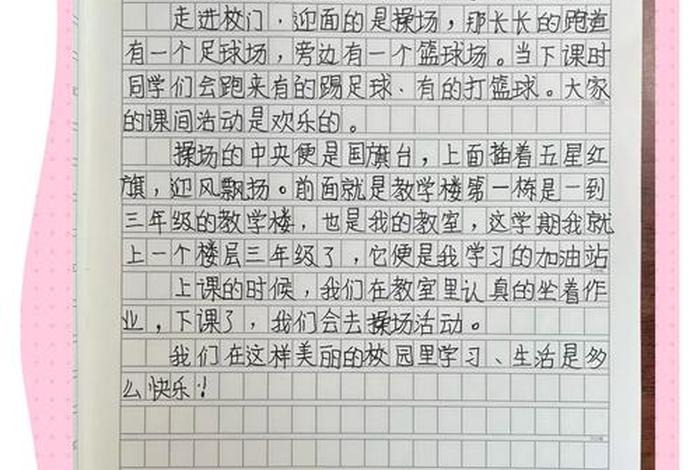 走进校门，迎面的是操场，那长长的跑道
有一个足球场，旁边有一个篮球场。当下课时
同学们会跑来有的踢足球、有的打篮球。大家
的课间活动是欢乐的。
操场的中央便是国旗台，上面插着五星红
旗，迎风飘扬。前面就是教学楼第一栋是一到
三年级的教学楼，也是我的教室，这学期我就
上一个楼层三年级了，它便是我学习的加油站
上课的时候，我们在教室里认真的坐着作
业，下课了，我们会去操场活动。
我们在这样美丽的校园里学习、生活是多
么快乐！